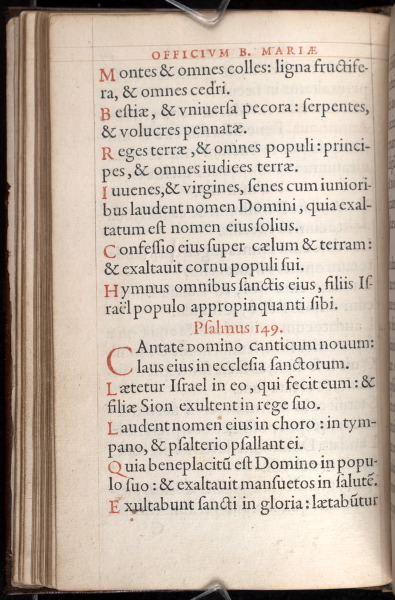 OFFICIVM B. MARIÆ
Montes & omnes colles: ligna fructife-
ra, & omnes cedri.
Bestiæ, & vniuersa pecora: serpentes,
& volucres pennatæ.
Reges terræ, & omnes populi: princi-
pes, & omnes iudices terræ.
Iuuenes, & virgines, senes cum iuniori-
bus laudent nomen Domini, quia exal-
tatum est nomen eius solius.
Confessio eius super cælum & terram:
& exaltauit cornu populi sui.
Hymnus omnibus sanctis eius, filiis Is-
raël populo appropinquanti sibi.
Psalmus 149.
CAntate Domino canticum nouum:
laus eius in ecclesia sanctorum.
Lætetur Israel in eo, qui fecit eum: &
filiæ Sion exultent in rege suo.
Laudent nomen eius in choro: in tym-
pano, & psalterio psallant ei.
Quia beneplacitũ est Domino in popu-
lo suo: & exaltauit mansuetos in salutẽ.
Exultabunt sancti in gloria: lætabũtur